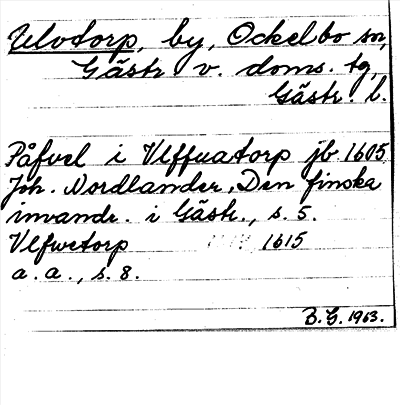 Ulvtorp, by, Ockelbo sn,
Gästr v. doms. tg,
Gästr. l.
Påfvel i Vlffuatorp jb 1605
Joh. Nordlander, Den finska
invandr. i Gästr., s. 5.
Vlfwetorp 1615
a. a., s. 8.
B. G. 1963.